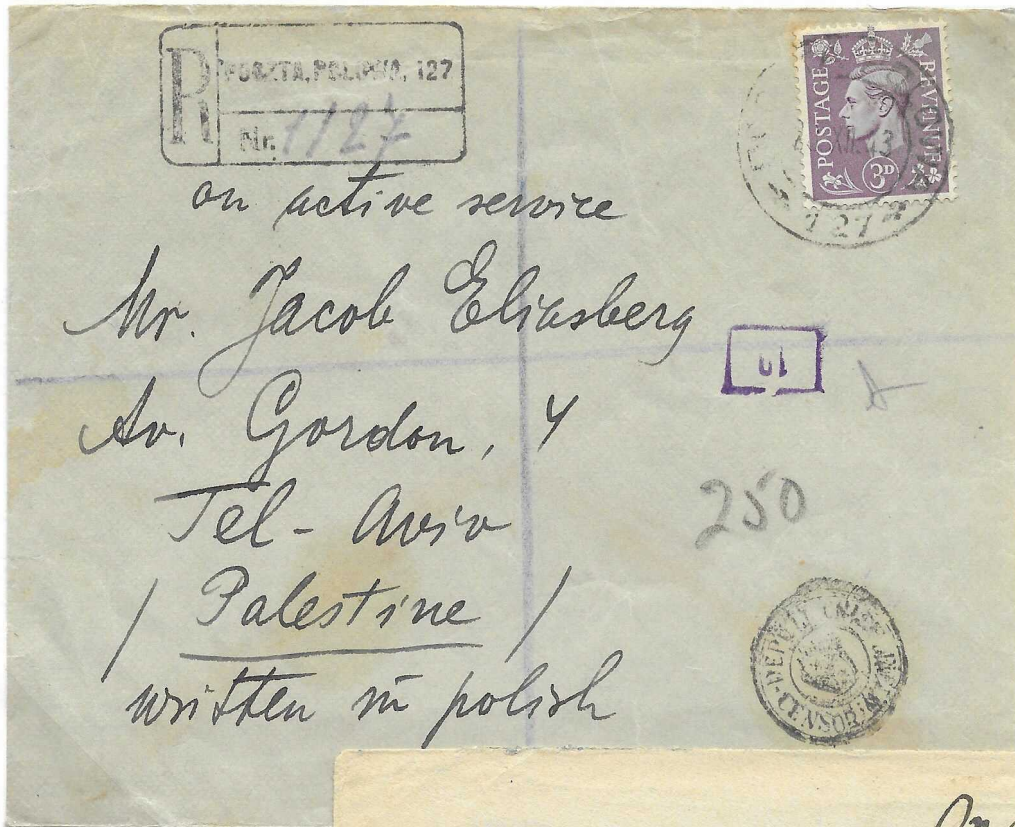 R POCZTA, POLOWA, 127
Nr. 1/27
POSTAGE REVENUE
3D
127
on active service
Mr. Jacob Eliasberg
Av. Gordon, 4
Tel-Aviv
/ Palestine /
written in polish
250
DEPUTY CHIEF
CENSOR